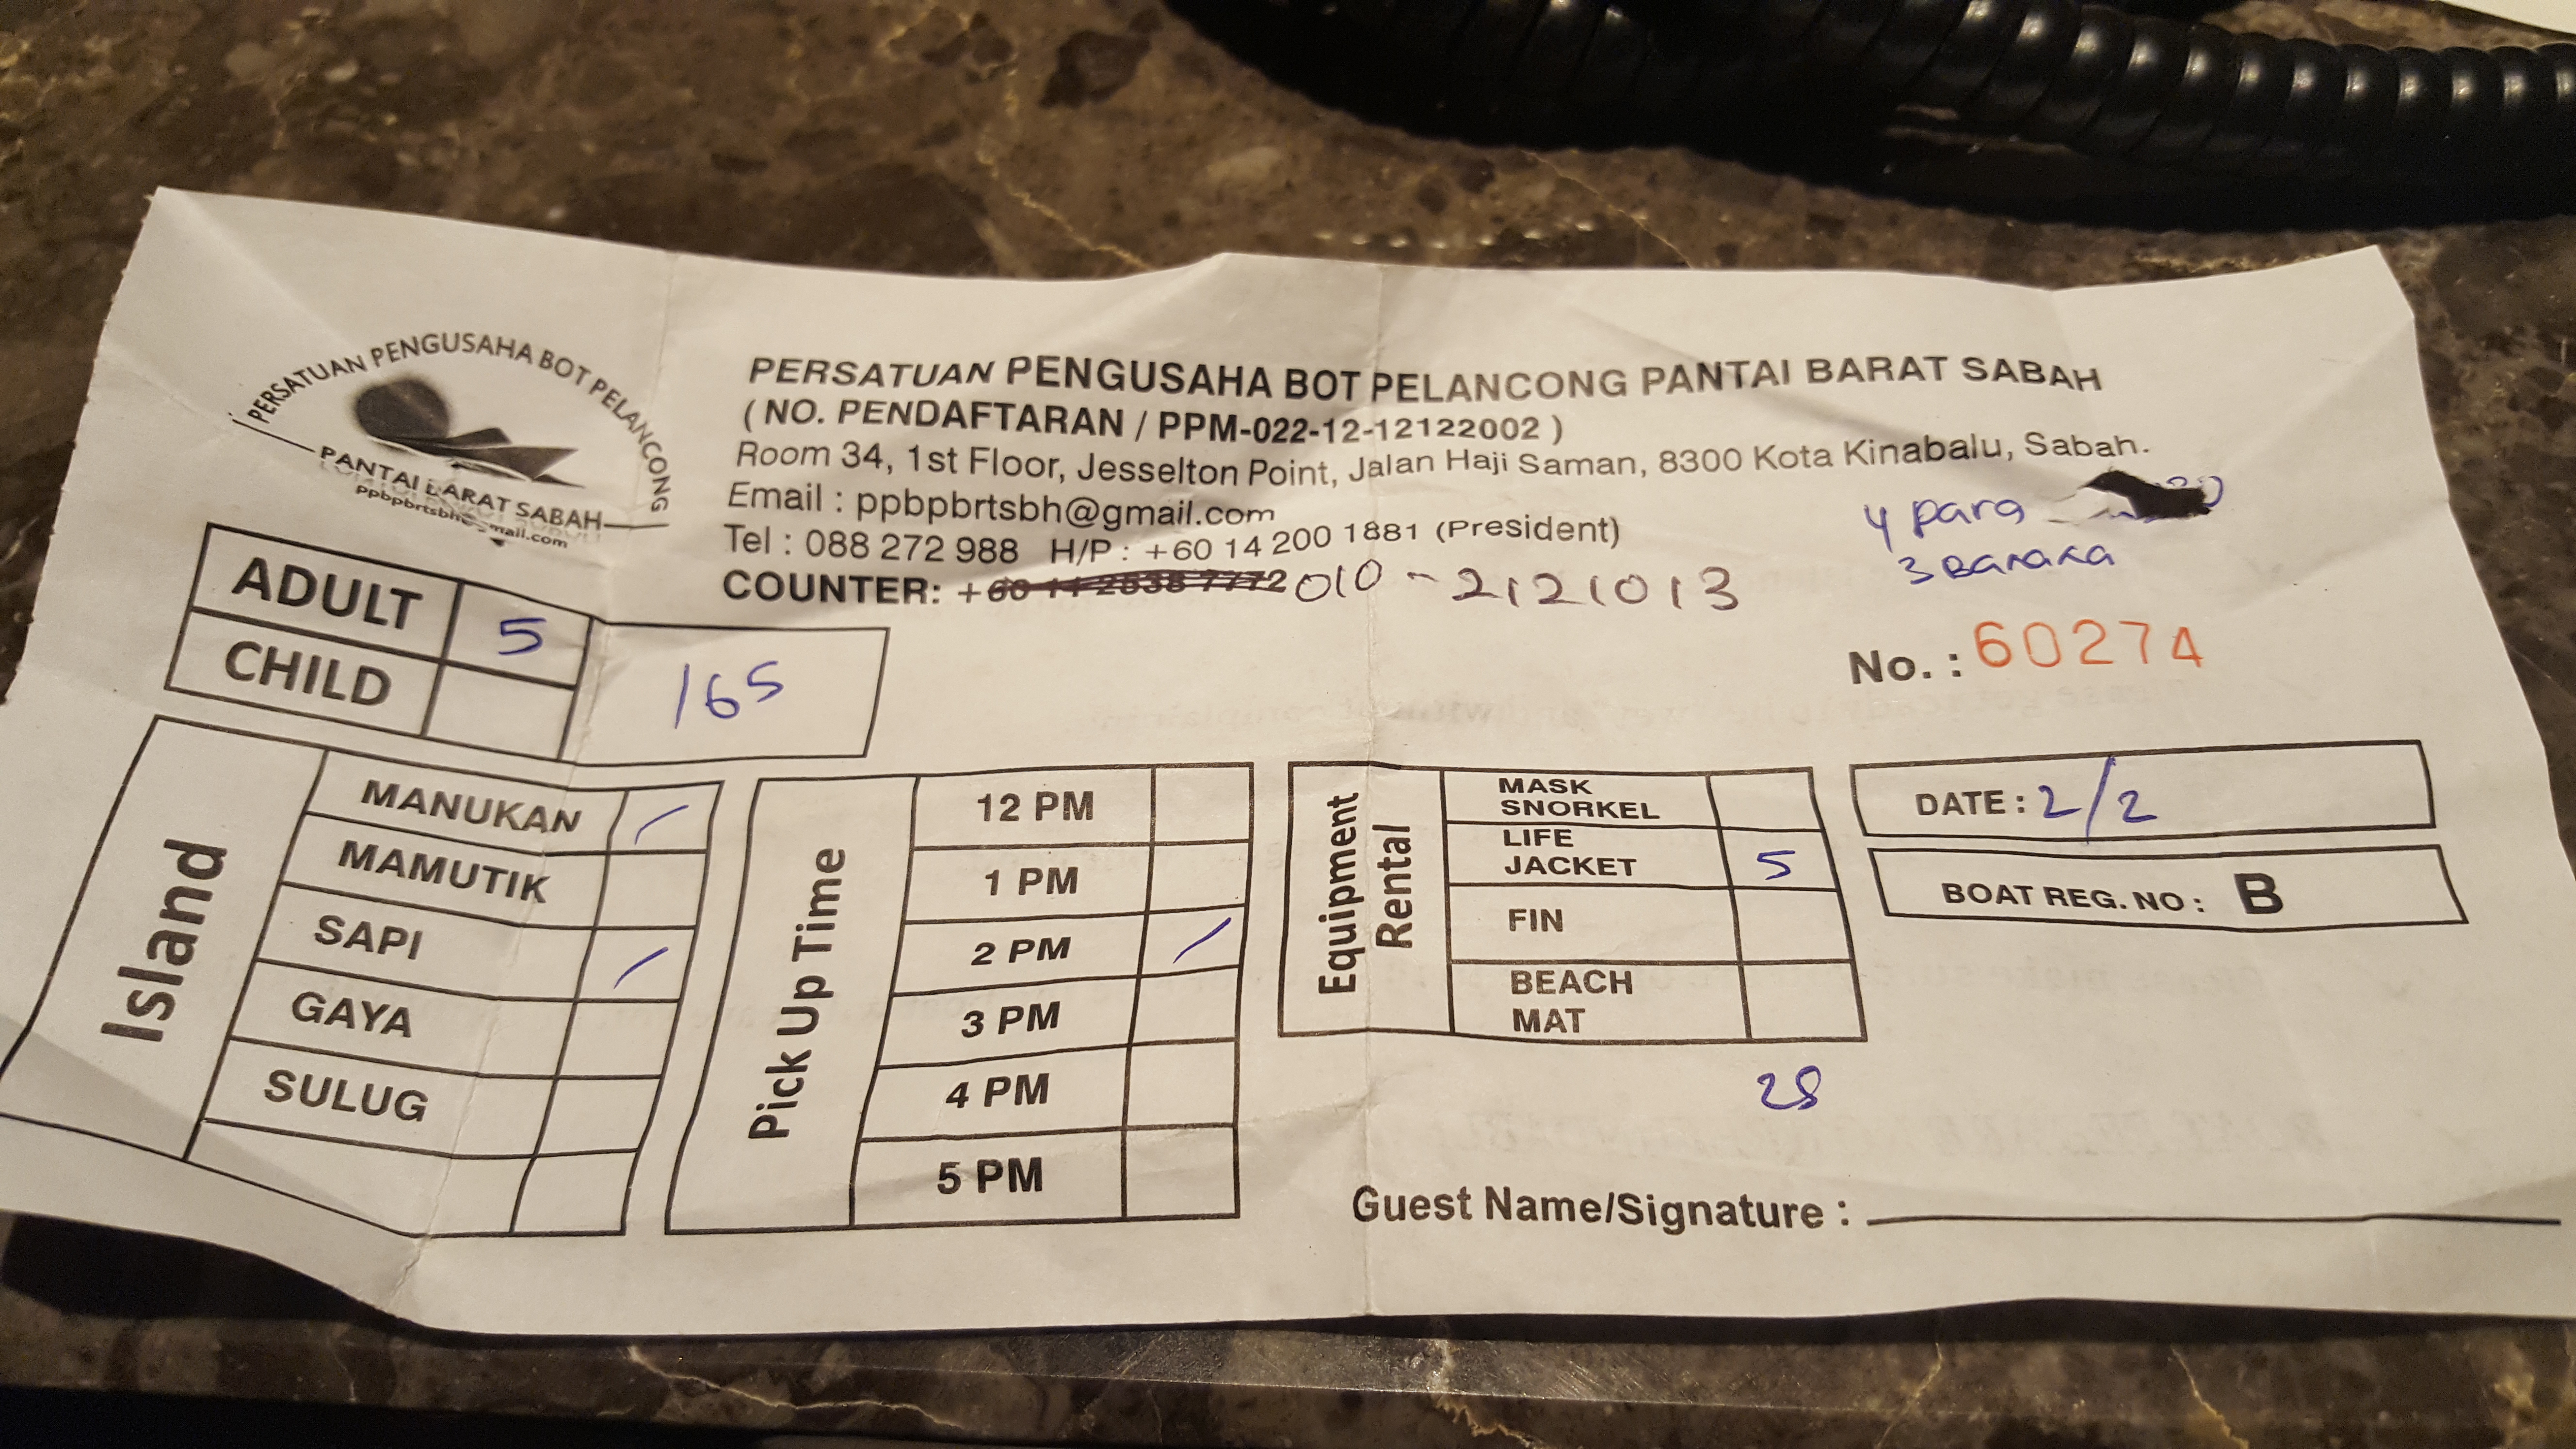 PERSATUAN PENGUSAHA BOT PELANCONG
PANTAI BARAT SABAH
PERSATUAN PENGUSAHA BOT PELANCONG PANTAI BARAT SABAH
( NO. PENDAFTARAN / PPM-022-12-12122002 )
Room 34, 1st Floor, Jesselton Point, Jalan Haji Saman, 8300 Kota Kinabalu, Sabah.
Email : ppbpbrtsbh@gmail.com
Tel : 088 272 988 H/P : +60 14 200 1881 (President)
COUNTER: +60 14 2838 7772 010 - 2121013
4 para
3 Banana
No. : 60274
ADULT 5
CHILD
165
Island
MANUKAN /
MAMUTIK
SAPI /
GAYA
SULUG
Pick Up Time
12 PM
1 PM
2 PM /
3 PM
4 PM
5 PM
Equipment
Rental
MASK
SNORKEL
LIFE
JACKET 5
FIN
BEACH
MAT
DATE : 2/2
BOAT REG. NO : B
Guest Name/Signature :